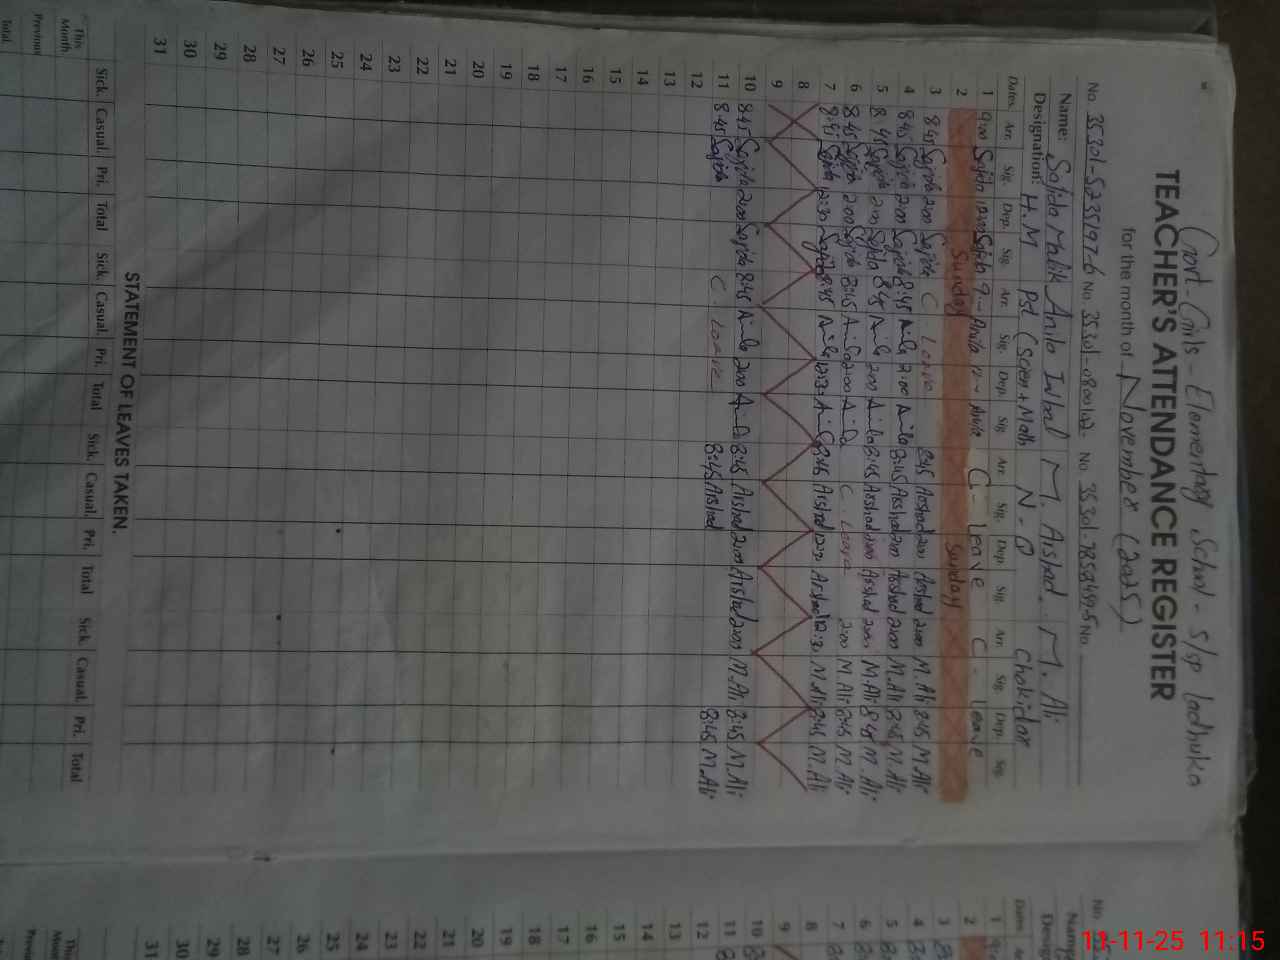 Govt. Girls - Elementary School - S/SP Ladhuka
TEACHER'S ATTENDANCE REGISTER
for the month of November (2025)
No. No. No. No.
Name: Sajida Malik Anila M. Arshad M. Ali
Designation: H.M Pst (Scien + Math) N-Q Chokidar
Dates Arr. Sig. Dep. Sig. Arr. Sig. Dep. Sig. Arr. Sig. Dep. Sig. Arr. Sig. Dep. Sig.
1 9:00 Sajida 12:00 Sajida 9 Anila 12 Anila C- Leave C- Leave
2 Sunday Sunday
3 8:45 Sajida 2:00 Sajida C. Leave 8:45 Arshad 2:00 Arshad 2:00 M. Ali 8:45 M. Ali
4 8:45 Sajida 2:00 Sajida 8:45 Anila 2:00 Anila 8:45 Arshad 2:00 Arshad 2:00 M. Ali 8:45 M. Ali
5 8:45 Sajida 2:00 Sajida 8:45 Anila 2:00 Anila 8:45 Arshad 2:00 Arshad 2:00 M. Ali 8:45 M. Ali
6 8:45 Sajida 2:00 Sajida 8:45 Anila 2:00 Anila C. Leave 2:00 M. Ali 8:45 M. Ali
7 8:45 Sajida 12:30 Sajida 8:45 Anila 12:30 Anila 8:45 Arshad 12:30 Arshad 12:30 M. Ali 8:45 M. Ali
8
9
10 8:45 Sajida 2:00 Sajida 8:45 Anila 2:00 Anila 8:45 Arshad 2:00 Arshad 2:00 M. Ali 8:45 M. Ali
11 8:45 Sajida C. Leave 8:45 Arshad 8:45 M. Ali
12
13
14
15
16
17
18
19
20
21
22
23
24
25
26
27
28
29
30
31
STATEMENT OF LEAVES TAKEN.
Sick. Casual. Pri. Total Sick. Casual. Pri. Total Sick. Casual. Pri. Total Sick. Casual. Pri. Total
This Month
Previous
Total.
No.
Name
Dates
1
2
3
4
5
6
7
8
9
10
11
12
13
14
15
16
17
18
19
20
21
22
23
24
25
26
27
28
29
30
31
11-11-25 11:15